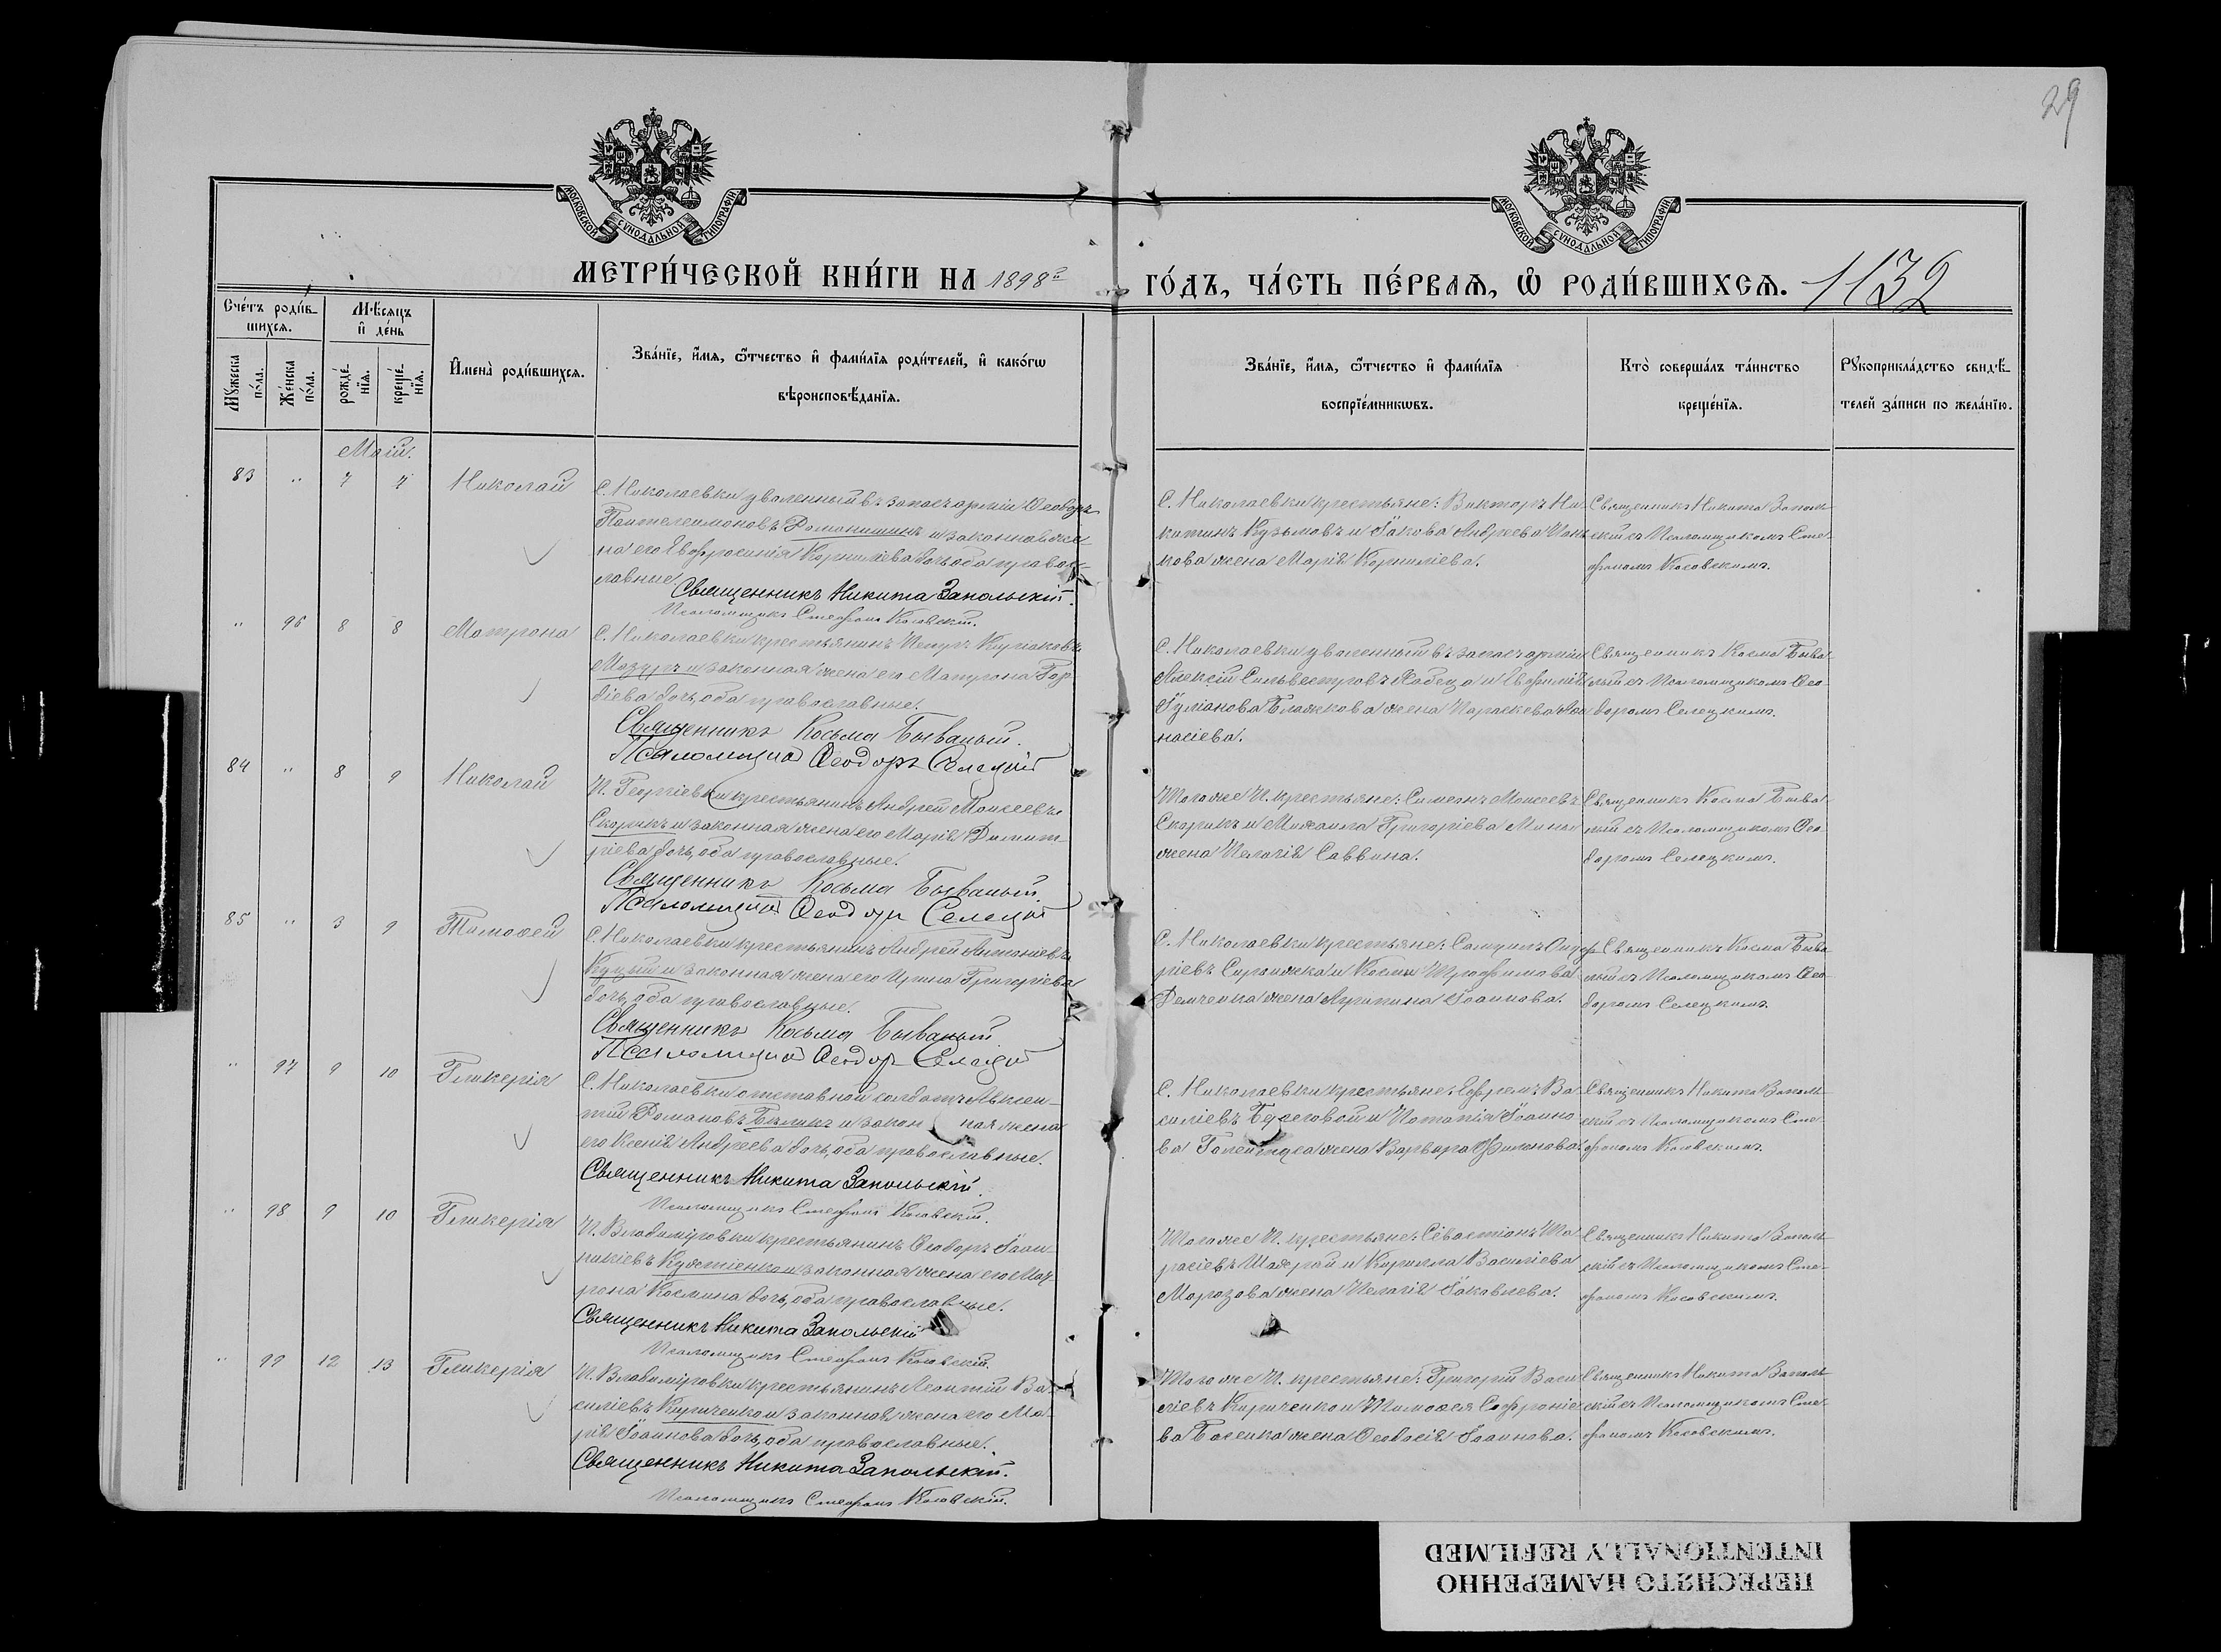 29
МОСКОВСКОЙ СѴНОДАЛЬНОЙ ТИПОГРАФІИ
МОСКОВСКОЙ СѴНОДАЛЬНОЙ ТИПОГРАФІИ
МЕТРИ́ЧЕСКОЙ КНИ́ГИ НА 1898й
ГО́ДЪ, ЧА́СТЬ ПЕ́РВАѦ, Ѡ РОДИ́ВШИХСѦ. 1132
Сче́тъ роди́в-
шихсѧ.
Мꙋ́жеска
по́ла.
Же́нска
по́ла.
Мѣ́сѧцъ
и҆ де́нь
рожде́-
нїѧ.
креще́-
нїѧ.
И҆мена̀ роди́вшихсѧ.
Зва́нїе, и҆́мѧ, ѻ҆́тчество и҆ фами́лїѧ роди́телей, и҆ како́гѡ
вѣроисповѣ́данїѧ.
Зва́нїе, и҆́мѧ, ѻ҆́тчество и҆ фами́лїѧ
воспрїе́мникѡвъ.
Кто̀ соверша́лъ та́инство
креще́нїѧ.
Рꙋкоприкла́дство свидѣ́-
телей за́писи по жела́нїю.
Май.
83 " 7 7 Николай
С. Николаевки уволенный въ запасъ арміи Ѳеодоръ
Пантелеимоновъ Романишинъ и законная же-
на его Евфросинія Корниліева дочь оба право-
славные.
Священникъ Никита Запольскій.
Псаломщикъ Стефанъ Косовскій.
С. Николаевки крестьяне: Викторъ Ни-
китинъ Кузьмовъ и Іакова Андреева
кова жена Марія Корниліева.
Священникъ Никита Заполь-
скій съ Псаломщикомъ Сте-
фаномъ Косовскимъ.
" 96 8 8 Матрона
С. Николаевки крестьянинъ Петръ Киріаковъ
Мазуръ и законная жена его Матрона Гор-
діева дочь, оба православные.
Священникъ Косьма Бываный.
Псаломщикъ Ѳеодоръ Селецкій
С. Николаевки уволенный въ запасъ арміи
Алексій Сильвестровъ и Евфимія
Іуліанова Блажкова жена Параскева Аѳа-
насіева.
Священникъ Косма Быва-
ный съ Псаломщикомъ Ѳео-
доромъ Селецкимъ.
84 " 8 9 Николай
П. Георгіевки крестьянинъ Андрей Моисеевъ
Скорикъ и законная жена его Марія Димит-
ріева дочь, оба православные.
Священникъ Косьма Бываный.
Псаломщикъ Ѳеодоръ Селецкій
Тогоже П. крестьяне: Симеонъ Моисеевъ
Скорикъ и Михаила Григоріева
жена Пелагія Саввина.
Священникъ Косма Быва-
ный съ Псаломщикомъ Ѳео-
доромъ Селецкимъ.
85 " 3 9 Тимоѳей
С. Николаевки крестьянинъ Андрей Антоніевъ
Куцый и законная жена его Ирина Григоріева
дочь, оба православные.
Священникъ Косьма Бываный
Псаломщикъ Ѳеодоръ Селецкій
С. Николаевки крестьяне: Самуилъ Онуф-
ріевъ и Космы Трофимова
Демченка жена Агрипина Іоаннова.
Священникъ Косма Быва-
ный съ Псаломщикомъ Ѳео-
доромъ Селецкимъ.
" 97 9 10 Гликерія
С. Николаевки отставной солдатъ Авксен-
тій Романовъ Бѣликъ и законная жена
его Ксенія Андреева дочь, оба православные.
Священникъ Никита Запольскій.
Псаломщикъ Стефанъ Косовскій.
С. Николаевки крестьяне: Ефремъ Ва-
силіевъ Береговой и Потапія Іоанно-
ва жена Варвара Филиппова.
Священникъ Никита Заполь-
скій съ Псаломщикомъ Сте-
фаномъ Косовскимъ.
" 98 9 10 Гликерія
П. Владиміровки крестьянинъ Ѳеодоръ Іоан-
никіевъ Костіенко и законная жена его Мат-
рона Космина дочь, оба православные.
Священникъ Никита Запольскій
Псаломщикъ Стефанъ Косовскій.
Тогоже П. крестьяне: Севастіанъ Та-
расіевъ и Кирилла Василіева
Морозова жена Пелагія Іаковлева.
Священникъ Никита Заполь-
скій съ Псаломщикомъ Сте-
фаномъ Косовскимъ.
" 99 12 13 Гликерія
П. Владиміровки крестьянинъ Леонтій Ва-
силіевъ Кириченко и законная жена его Ма-
рія Іоаннова дочь, оба православные.
Священникъ Никита Запольскій.
Псаломщикъ Стефанъ Косовскій.
Тогоже П. крестьяне: Григорій Васи-
ліевъ Кириченко и Тимоѳея Софроніе-
ва жена Ѳеодосія Іоаннова.
Священникъ Никита Заполь-
скій съ Псаломщикомъ Сте-
фаномъ Косовскимъ.
ПЕРЕСНЯТО НАМЕРЕННО
INTENTIONALLY REFILMED